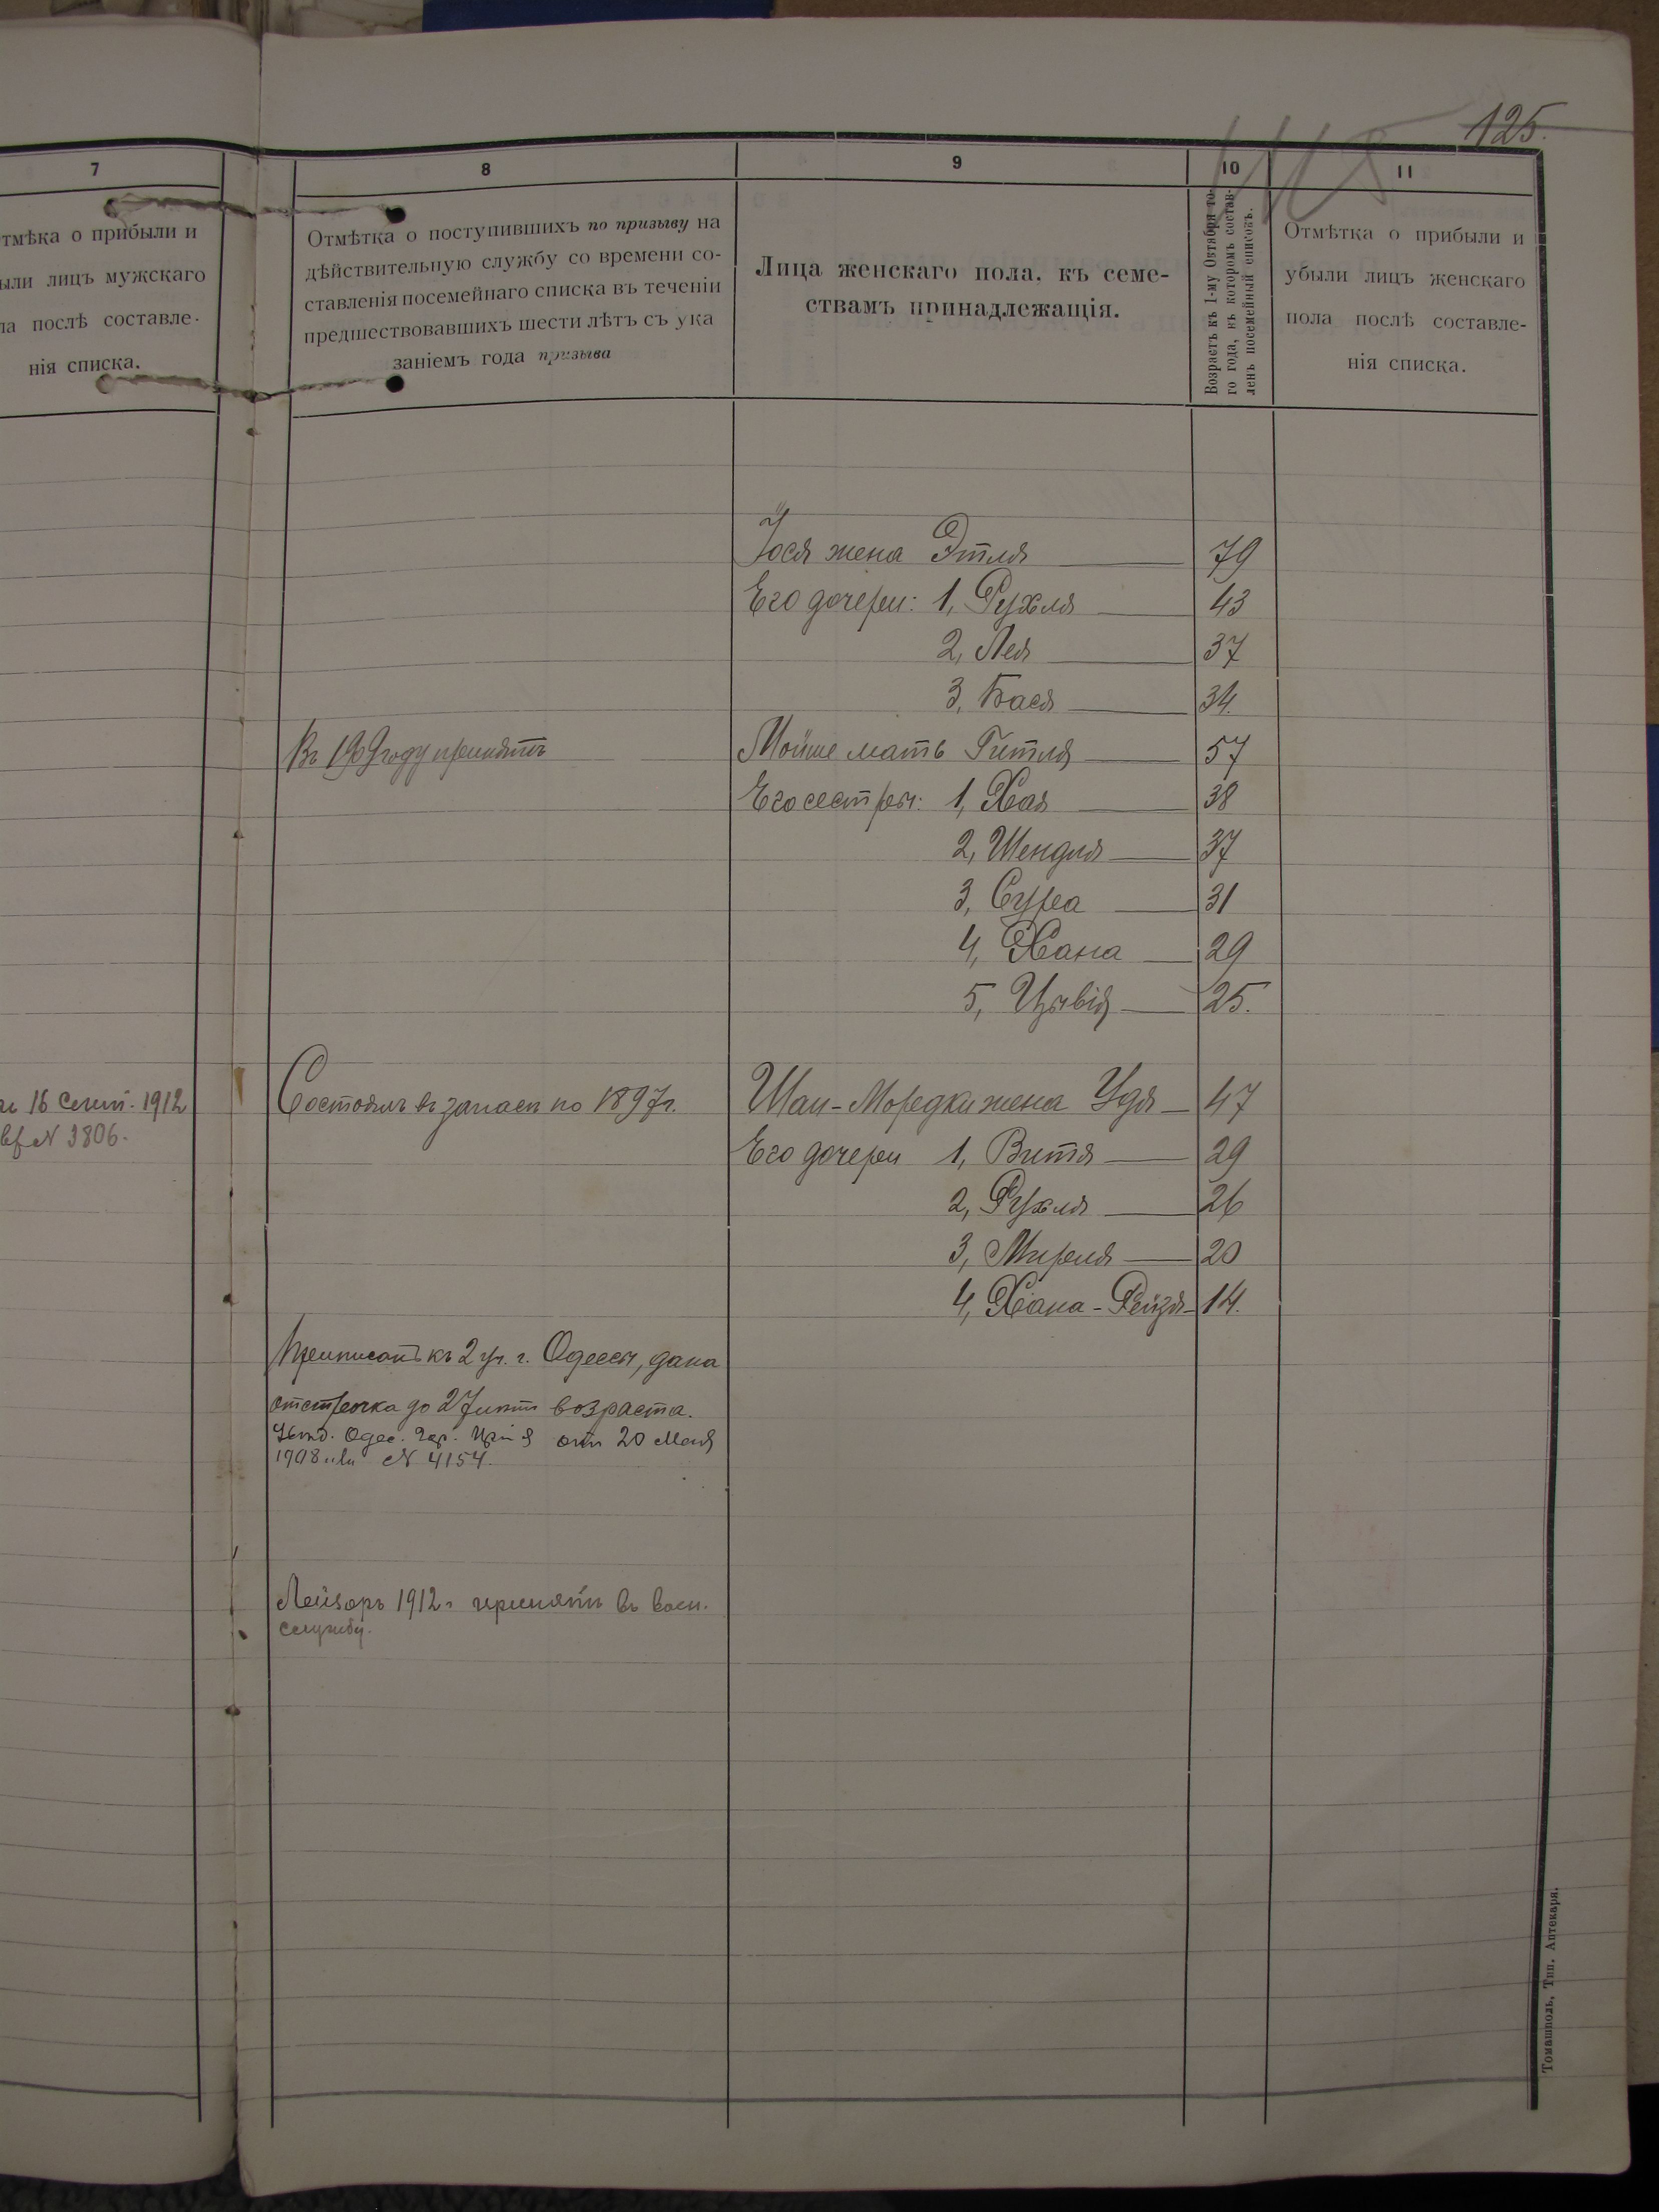 125.
115
7
8
9
10
11
тмѣка о прибыли и
ыли лицъ мужскаго
ла послѣ составле-
нія списка.
Отмѣтка о поступившихъ по призыву на
дѣйствительную службу со времени со-
ставленія посемейнаго списка въ теченіи
предшествовавшихъ шести лѣтъ съ ука
заніемъ года призыва
Лица женскаго пола, къ семе-
ствамъ принадлежащія.
Возрастъ къ 1-му Октября то-
го года, въ которомъ состав-
ленъ посемейный списокъ.
Отмѣтка о прибыли и
убыли лицъ женскаго
пола послѣ составле-
нія списка.
Іося жена Этля 79
Его дочери: 1, Рухля 43
2, Лея 37
3, Бася 34.
Въ 1909 году принятъ
Мойше мать Гитля 57
Его сестры: 1, Хая 38
2, Шендля 37
3, Сура 31
4, Хана 29
5, Цывія 25.
16 Сент. 1912
№ 3806.
Состоялъ въ запасѣ по 1897 г.
Шаи-Мордки жена Удя 47
Его дочери 1, Витя 29
2, Рухля 26
3, Миреля 20
4, Хана-Рейзя 14.
Приписанъ къ 2 уч. г. Одессы, дана
отсрочка до 27 лѣтн возраста.
Одес. Гор. от 20 Мая
1908 № 4154.
Лейзоръ 1912 г принятъ въ воен.
службу.
Томашполь, Тип. Аптекаря.